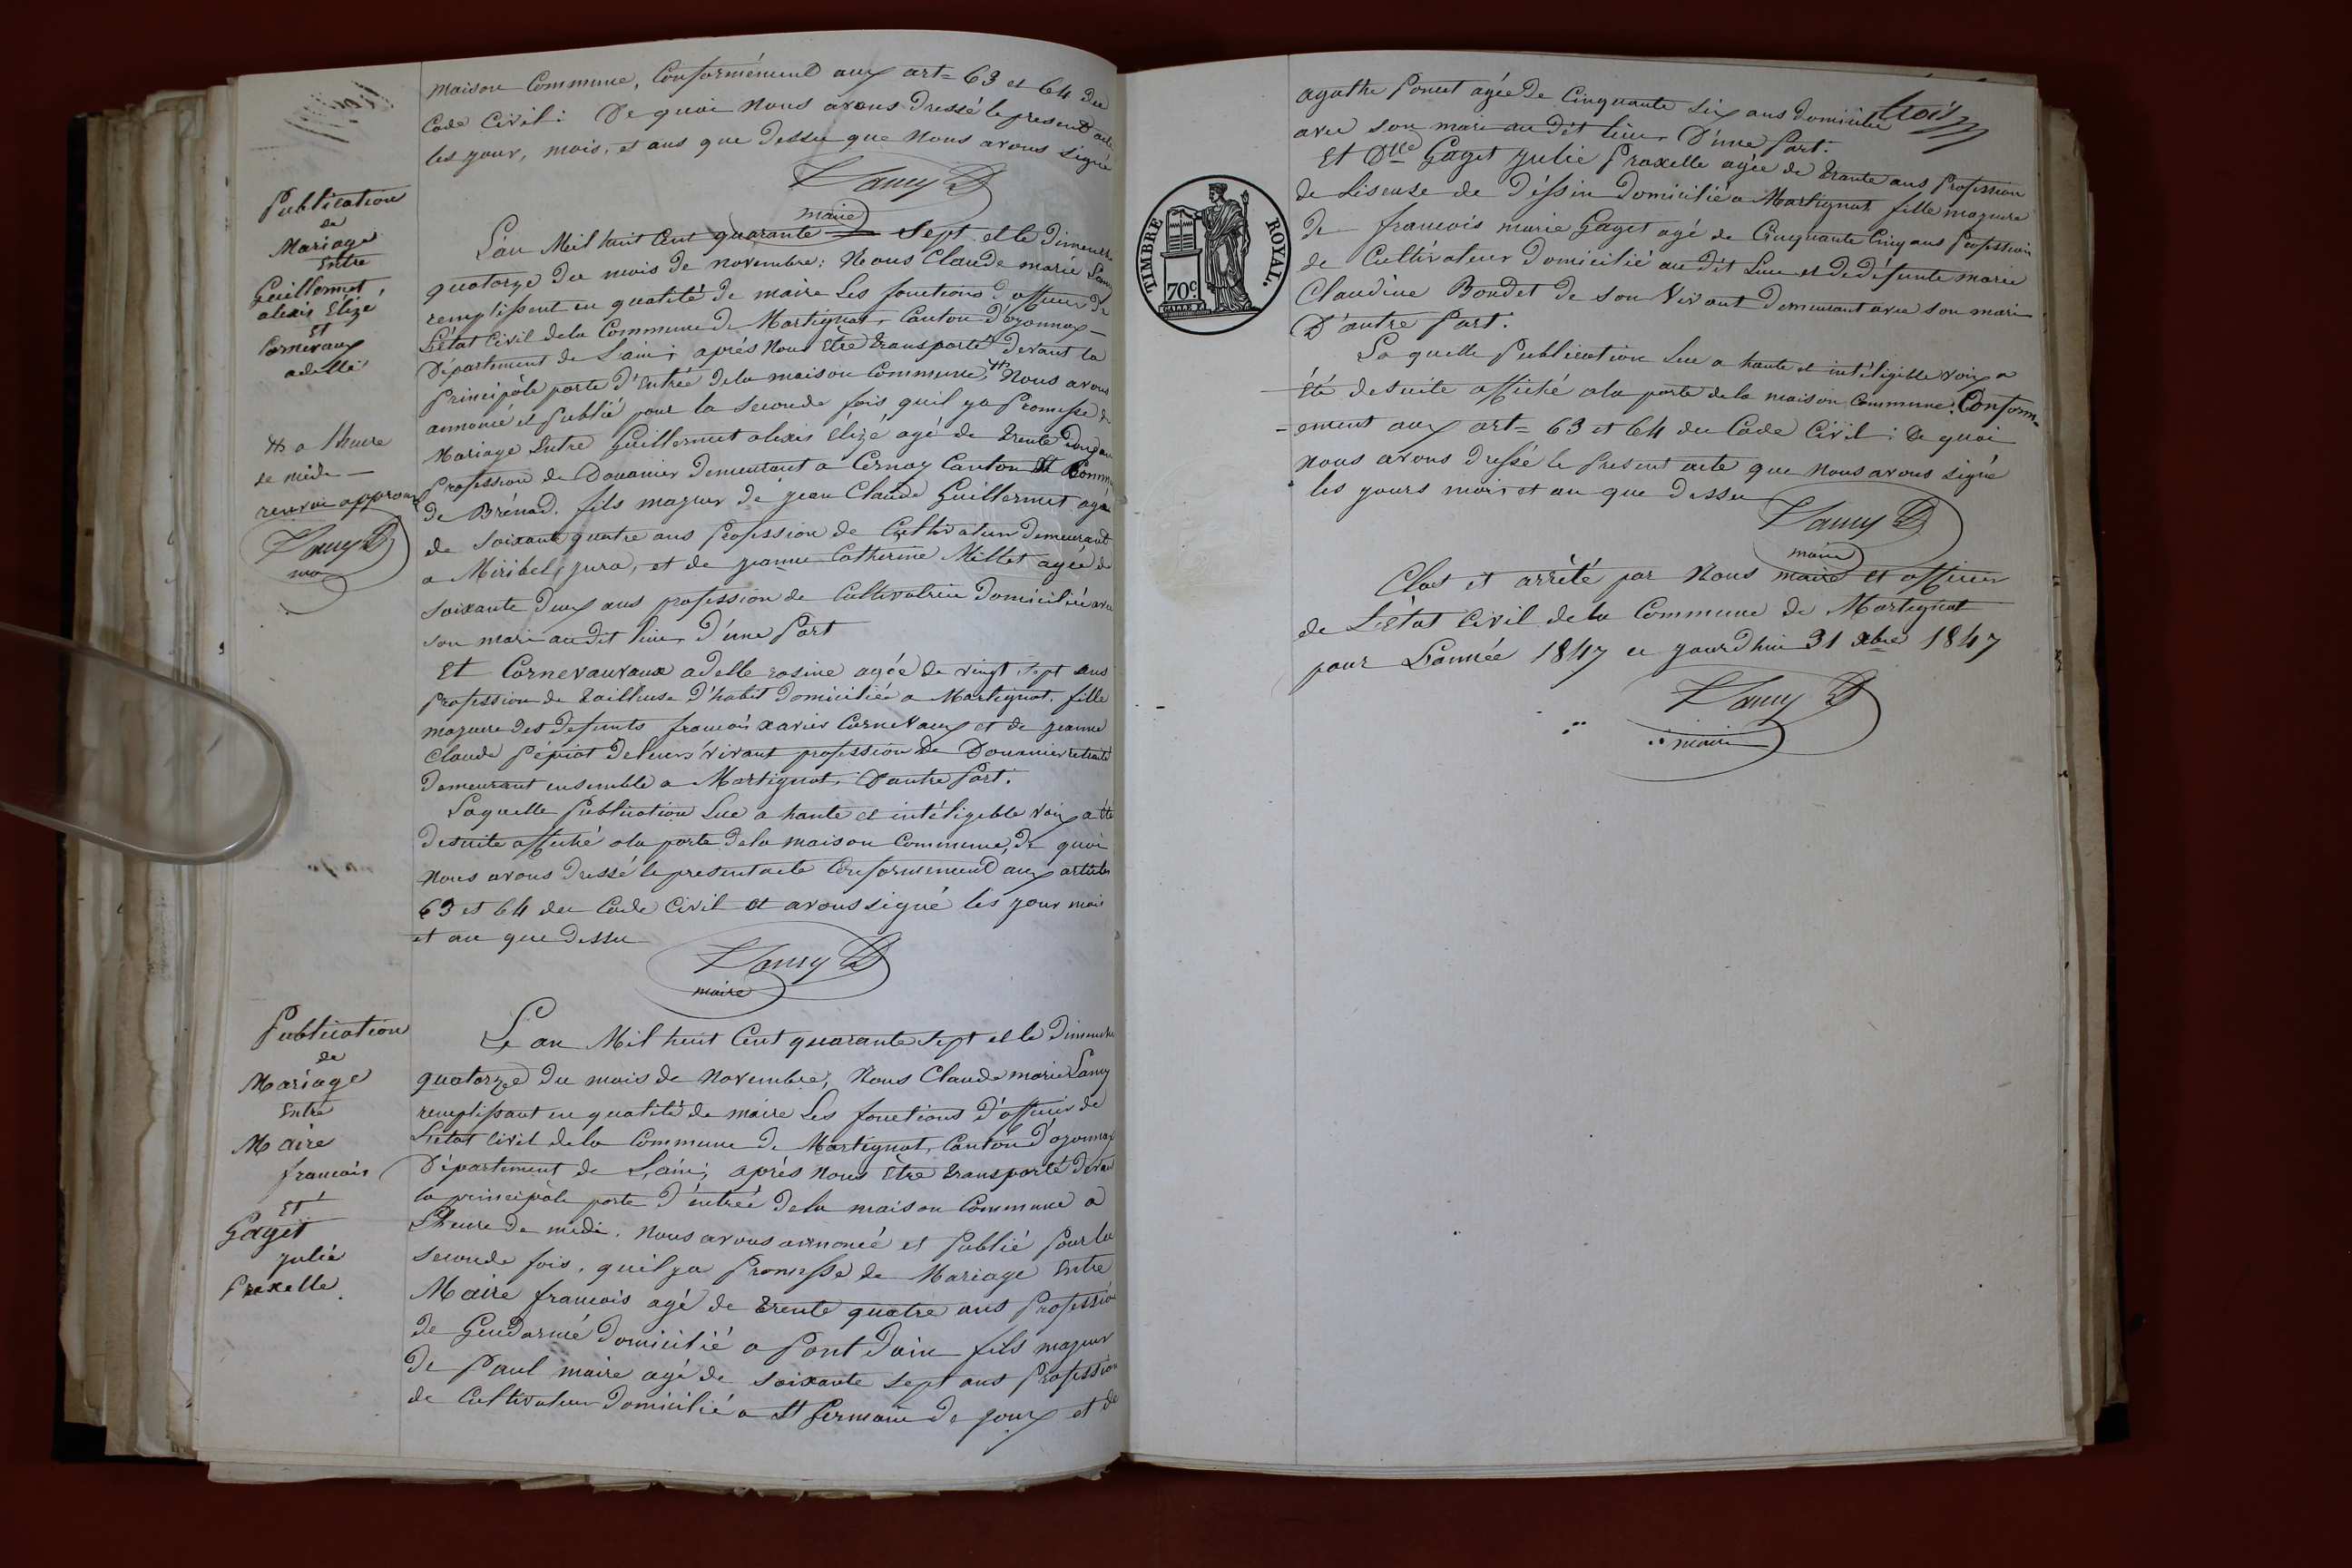 maison Commune, Conformément aux art= 63 et 64 du
Code Civil: De quoi Nous avons dressé le present acte
les jour, mois, et ans que dessu que Nous avons signé
Lancy
maire
Publication
de
Mariage
Entre
Guillermet,
alexis Élizé
Et
Cornevaux
adelle
L'an Mil huit Cent quarante Sept et le Dimenche
quatorze du mois de novembre: Nous Claude marie
remplissent en qualité de maire Les fonctions d'officier de
L'état Civil dela Commune de Martignat, Canton d'oyonnax
Département de L'ain; aprés Nous Etre transporté devant la
Principâle porte d'Entrée dela maison Commune, Nous avons
annoncé et Publié pour la Seconde fois quil ya Promesse de
Mariage Entre Guillermet alexis Elizé agé de trente
Profession de Douanier demeurant a Cernay Canton
de Brénod. fils majeur de jean Claude Guillermet agé
de soixante quatre ans profession de Cultivateur demeurant
a Miribel, jura, et de jeanne Catherine Millet agée de
soixante deux ans profession de Cultivatrice domiciliée avec
son mari au dit lieu, d'une Part
a lheure
de midi
renvoi approuvé
Lancy
Et Cornevauvaux adelle rosine agée de vingt sept ans
Profession de tailleuse d'habit domiciliée a Martignat, fille
majeure des defunts francois xavier Cornevaux et de jeanne
Claude Pépiot de leurs vivant profession de Douanier retraité
demeurant ensemble a Martignat, D'autre Part.
Laquelle Publication Lue a haute et intéligible voix a été
desuite affiché ala porte dela maison Commune, de quoi
Nous avons dressé le present acte Conformement aux articles
63 et 64 du Code Civil et avons signé les jour mois
et an que dessu
Lancy
maire
Publication
de
Mariage
Entre
Maire
francois
Et
Gaget
julie
Praxelle
L'an Mil huit Cent quarante Sept et le Dimenche
quatorze du mois de Novembre, Nous Claude marie Lancy
remplissant en qualité de maire Les fonctions d'officier de
L'état Civil dela Commune de Martignat, Canton d'oyonnax
Département de L'ain; aprés Nous être transporté devant
la principâle porte d'entrée dela maison Commune a
L'heure de midi, Nous avons annoncé et Publié Pour la
Seconde fois, quil ya Promesse de Mariage Entre
Maire francois agé de trente quatre ans Profession
de Gendarme domicilié a Pont Dain fils majeur
de Paul maire agé de soixante sept ans Profession
de Cultivateur domicilié a St Germain de joux et de
trois
agathe Poncet agée de Cinquante Six ans domiciliée
avec son mari au dit lieu, D'une Part.
Et Dlle Gaget julie Praxelle agée de trante ans Profession
de Liseuse de Déssin domiciliée a Martignat, fille majeure
de francois marie Gaget agé de Cinquante Cinq ans Profession
de Cultivateur domicilié au dit Lieu et de défunte marie
Claudine Boudet de son Vivant demeurant avec son mari
D'autre Part.
TIMBRE ROYAL.
70c
La quelle Publication Lue a haute et intéligible voix a
été desuite affiché ala porte dela maison Commune. Conform-
-ement aux art= 63 et 64 du Code Civil: De quoi
Nous avons dressé le Present acte que Nous avons signé
les jours mois et an que dessu
Lancy
maire
Clos et arrêté par Nous maire et officier
de L'état civil dela Commune de Martignat
pour L'année 1847 ce jourdhui 31 xbre 1847
Lancy
maire